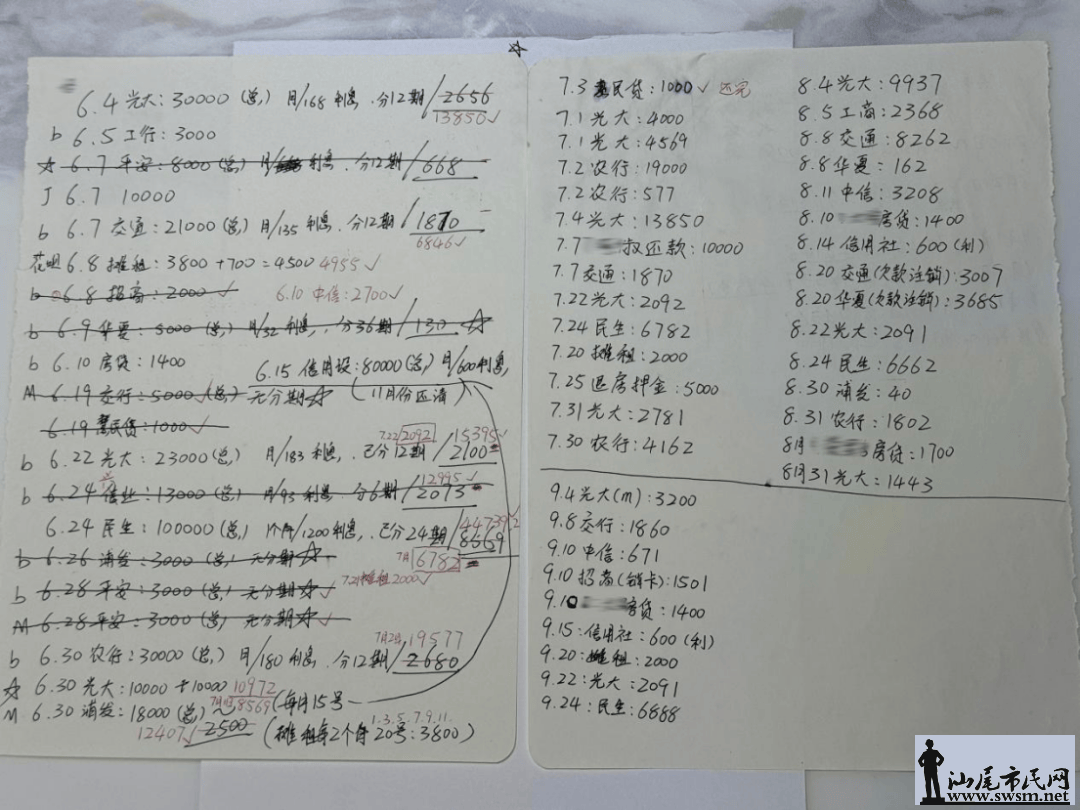 6.4 光大:30000 (总,) 月/168 利息. 分12期/2656
13850✓
b 6.5 工行:3000
☆ 6.7 平安:8000 (总) 月/ 利息. 分12期/668
J 6.7 10000
b 6.7 交通:21000 (总,) 月/135 利息. 分12期/1870
6846✓
花呗 6.8 摊租:3800+700=4500 4955✓
b 6.8 招商:2000✓ 6.10 中信:2700✓
b 6.9 华夏:5000 (总,) 月/32 利息,. 分36期/130 ☆
b 6.10 房贷:1400
6.15 信用设:80000(总,) 月/600利息,
M 6.19 交行:5000 (总,) 无分期☆ (11月份还清)
6.19 惠民贷:1000✓
7.22 2092 15395✓
b 6.22 光大:23000(总,) 月/183 利息,. 已分12期/2100
12995✓
b 6.24 兴业:13000(总,) 月/93 利息. 分6期/2073
44739
6.24 民生:100000(总,) 1个月/1200利息,.已分24期/8669
b 6.26 浦发:3000 (总,) 无分期☆
7月 6782
b 6.28 平安:3000 (总,) 无分期☆✓
7.21摊租2000✓
M 6.28 平安:3000 (总,) 无分期☆✓
7月2日 19577
b 6.30 农行:30000 (总,) 月/180 利息. 分12期/2680
☆ 6.30 光大:10000+10000 10972
8569 (每月15号
M 6.30 浦发:18000 (总)
12407✓ 2500
1.3.5.7.9.11.
(摊租每2个月20号:3800)
7.3 惠民贷:1000✓ 还完
7.1 光大:4000
7.1 光大:4569
7.2 农行:19000
7.2 农行:577
7.4 光大:13850
7.7 叔还款:10000
7.7 交通:1870
7.22 光大:2092
7.24 民生:6782
7.20 摊租:2000
7.25 退房押金:5000
7.31 光大:2781
7.30 农行:4162
8.4 光大:9937
8.5 工商:2368
8.8 交通:8262
8.8 华夏:162
8.11 中信:3208
8.10 房贷:1400
8.14 信用社:600(利)
8.20 交通(欠款注销):3007
8.20 华夏(欠款注销):3685
8.22 光大:2091
8.24 民生:6662
8.30 浦发:40
8.31 农行:1802
8月 房贷:1700
8月31 光大:1443
9.4 光大(m):3200
9.8 交行:1860
9.10 中信:671
9.10 招商(销卡):1501
9.10 房贷:1400
9.15:信用社:600(利)
9.20:摊租:2000
9.22:光大:2091
9.24:民生:6888
汕尾市民网
www.swsm.net